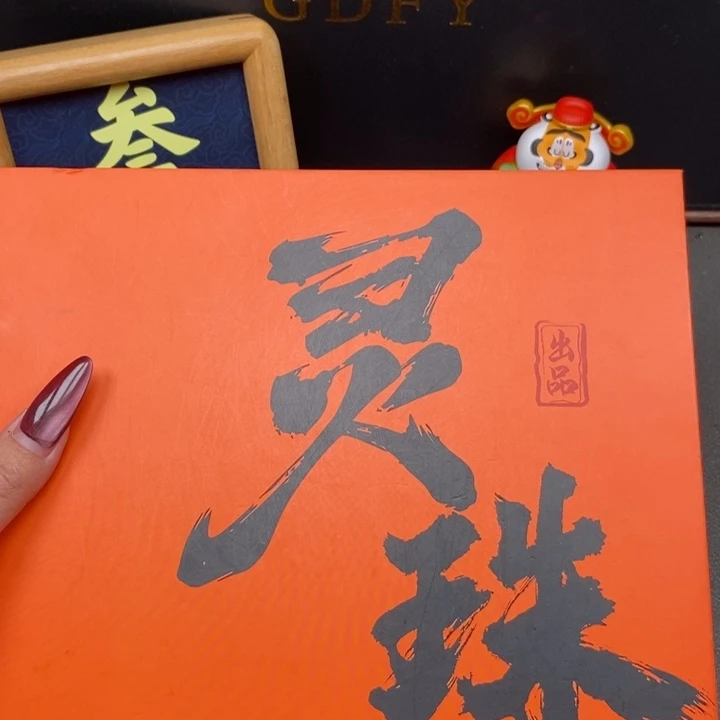 GDFY
叁
灵珠
出品